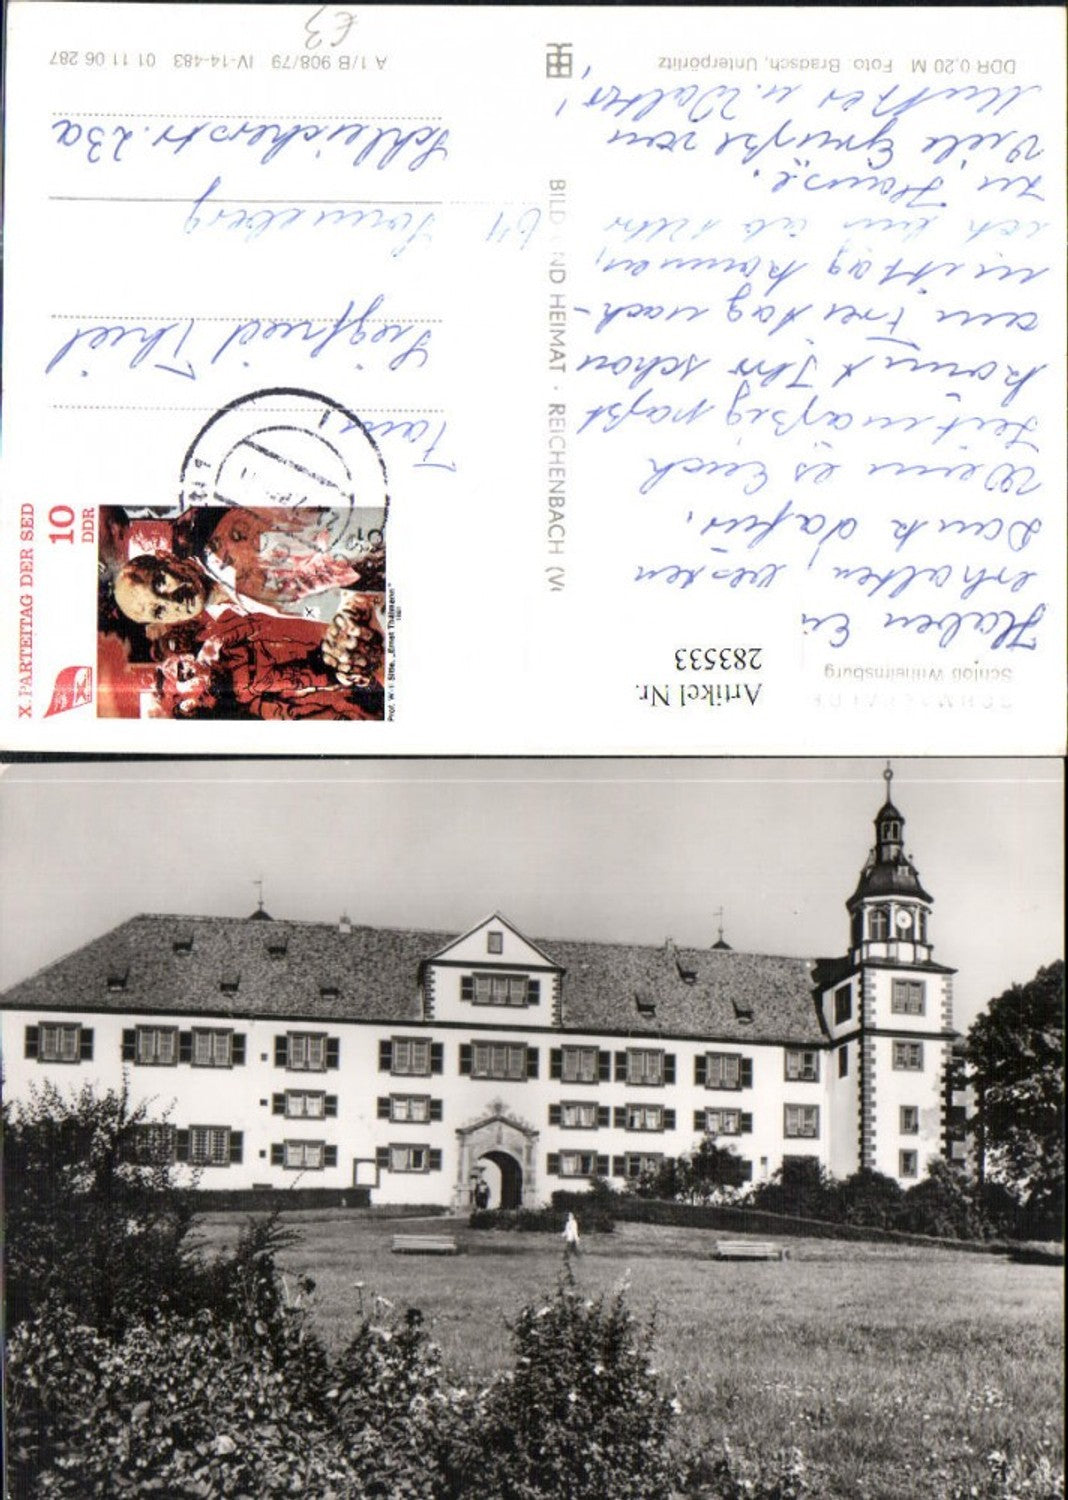 SCHMALKALDEN
Schloß Wilhelmsburg
Artikel Nr.
283533
Haben Eu
erhalten, besten
Dank dafür.
Wenn es Euch
zeitmäßig paßt
kommt Ihr schon
am Freitag nach-
mittag kommen,
ich bin ab Uhr
zu Hause.
Viele Grüße von
Mutter u. Walter!
DDR 0,20 M Foto Bradsch, Unterpörlitz
BILD UND HEIMAT · REICHENBACH (V
X. PARTEITAG DER SED
10
DDR
Prof. W. Sitte, „Ernst Thälmann“
1981
Fam.
Siegfried Thiel
64 Sonneberg
Schleicherstr. 23a
A 1/B 908/79 IV-14-483 01 11 06 287
£3